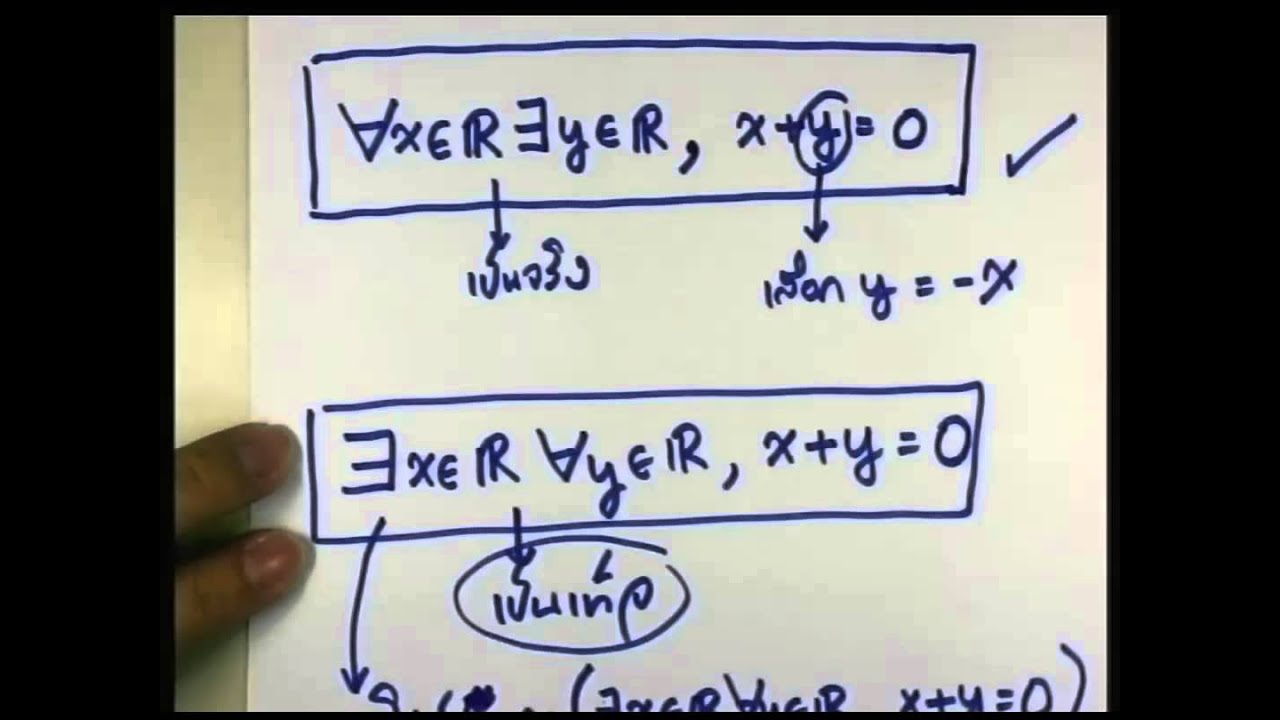 ∀x∈ℝ ∃y∈ℝ, x+y=0 ✓
เป็นจริง
เลือก y = -x
∃x∈ℝ ∀y∈ℝ, x+y=0
เป็นเท็จ
(∃x∈ℝ ∀y∈ℝ, x+y=0)